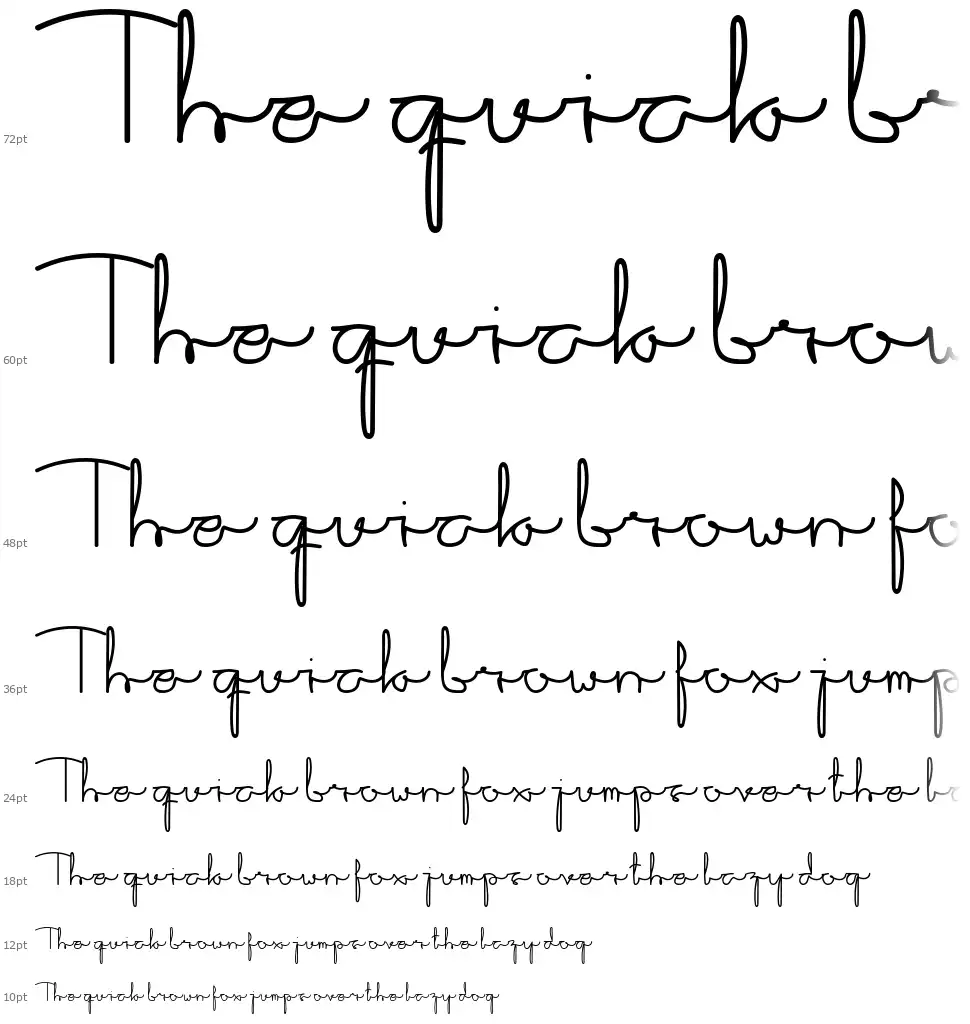 72pt The quick br
60pt The quick brow
48pt The quick brown fo
36pt The quick brown fox jump
24pt The quick brown fox jumps over the la
18pt The quick brown fox jumps over the lazy dog
12pt The quick brown fox jumps over the lazy dog
10pt The quick brown fox jumps over the lazy dog